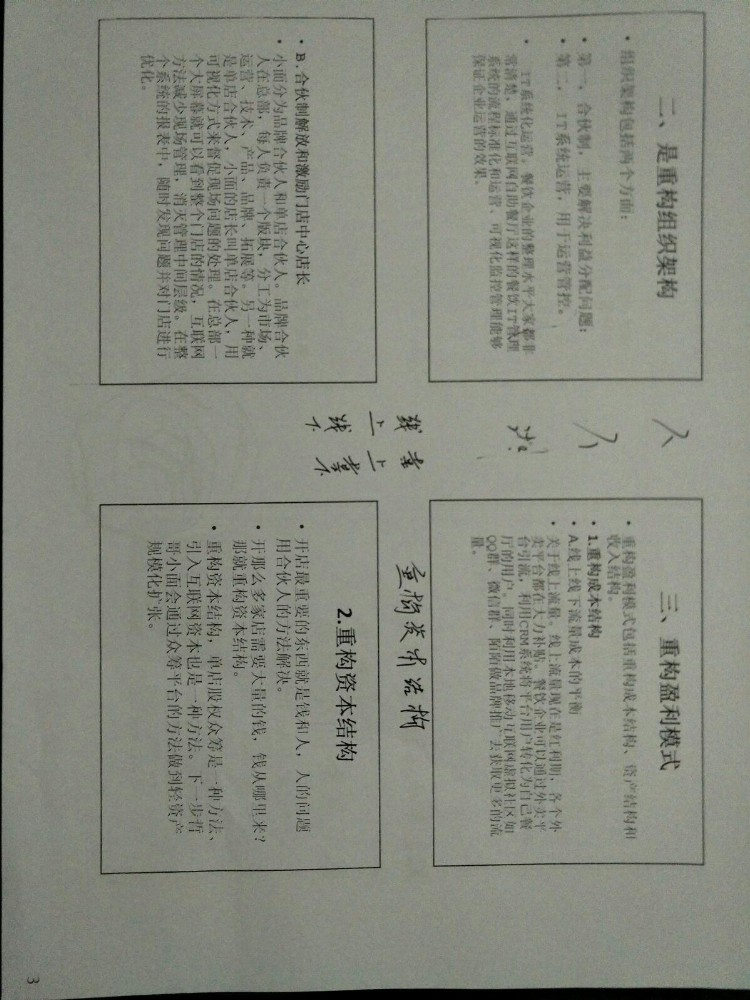 二、是重构组织架构
• 组织架构包括两个方面：
• 第一，合伙制，主要解决利益分配问题；
• 第二，IT系统运营，用于运营管控。
• IT系统化运营：餐饮企业的整理水平大家都非
常清楚，通过互联网自助餐厅这样的餐饮IT管理
系统的流程标准化和运营、可视化监控管理能够
保证企业运营的效果。
• B.合伙制解放和激励门店中心店长
• 小面分为品牌合伙人和单店合伙人。品牌合伙
人在总部，每人负责一个版块，分工为市场、
运营、技术、产品、品牌、拓展等。另一种就
是单店合伙人，小面的店长叫单店合伙人，用
可视化方式来督促现场问题的处理。在总部一
个大屏幕就可以看到整个门店的情况，互联网
方法减少现场管理，消灭管理中间层级。在整
个系统的报表中，随时发现问题并对门店进行
优化。
三、重构盈利模式
• 重构盈利模式包括重构成本结构、资产结构和
收入结构。
• 1.重构成本结构
• A.线上线下流量成本的平衡
• 关于线上流量，线上流量现在是红利期，各个外
卖平台都在大力补贴，餐饮企业可以通过外卖平
台引流，利用CRM系统将平台用户转化为自己餐
厅的用户，同时利用本地移动互联网虚拟社区如
QQ群、微信群、陌陌做品牌推广去获取更多的流
量。
2.重构资本结构
• 开店最重要的东西就是钱和人，人的问题
用合伙人的方法解决。
• 开那么多家店需要大量的钱，钱从哪里来？
那就重构资本结构。
• 重构资本结构，单店股权众筹是一种方法、
引入互联网资本也是一种方法。下一步哲
哥小面会通过众筹平台的方法做到轻资产
规模化扩张。
人
线上线下
重构资本结构
3